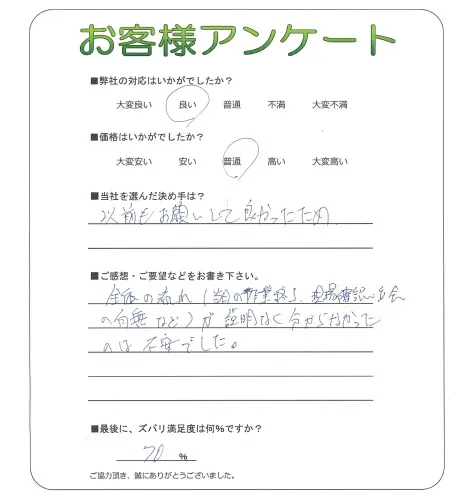 お客様アンケート
■弊社の対応はいかがでしたか？
大変良い 良い 普通 不満 大変不満
■価格はいかがでしたか？
大変安い 安い 普通 高い 大変高い
■当社を選んだ決め手は？
以前もお願いして良かったため
■ご感想・ご要望などをお書き下さい。
全体の流れ（当日の作業終了、現場確認、立会
の有無など）が説明なく分からなかった
のは不安でした。
■最後に、ズバリ満足度は何％ですか？
70 %
ご協力頂き、誠にありがとうございました。